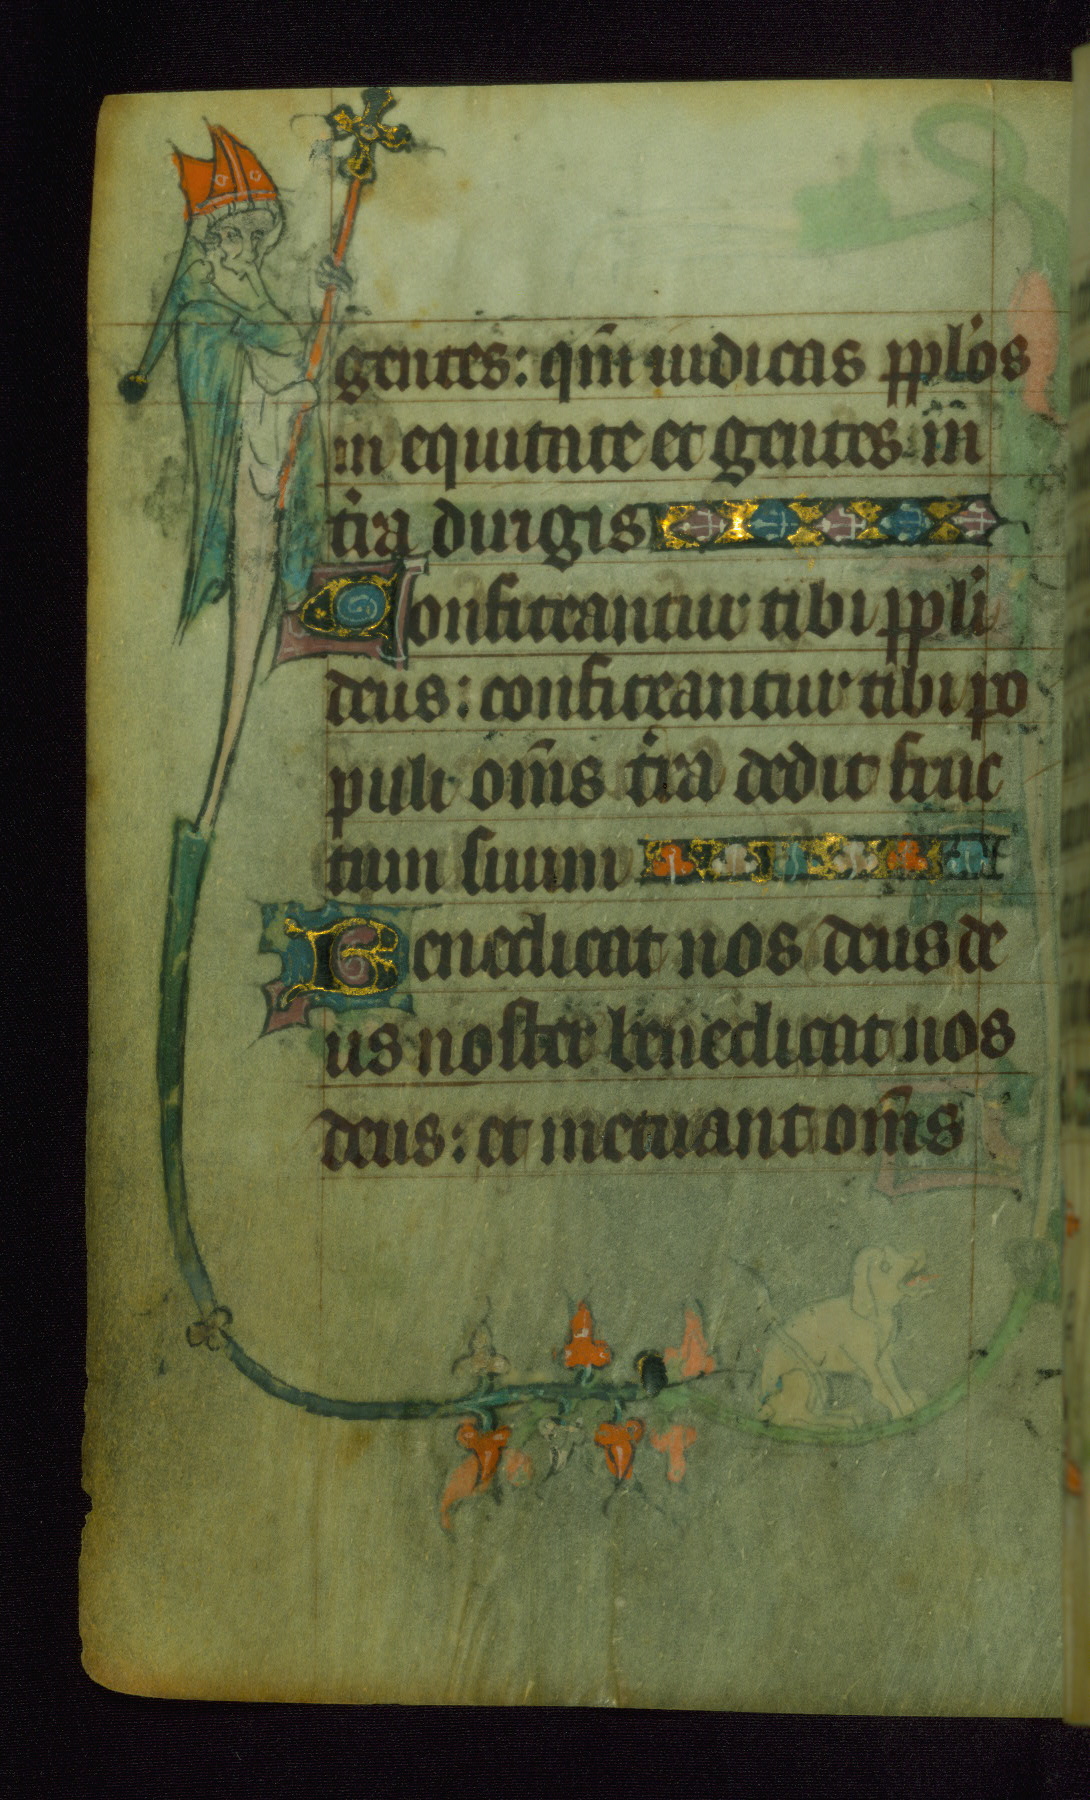 gentes: qm̄ iudicas pplōs
in equitate et gentes in
tr̄a dirigis
Confiteantur tibi ppli
deus: confiteantur tibi po
puli om̄s tr̄a dedit fruc
tum suum
Benedicat nos deus de
us noster benedicat nos
deus: et metuant om̄s